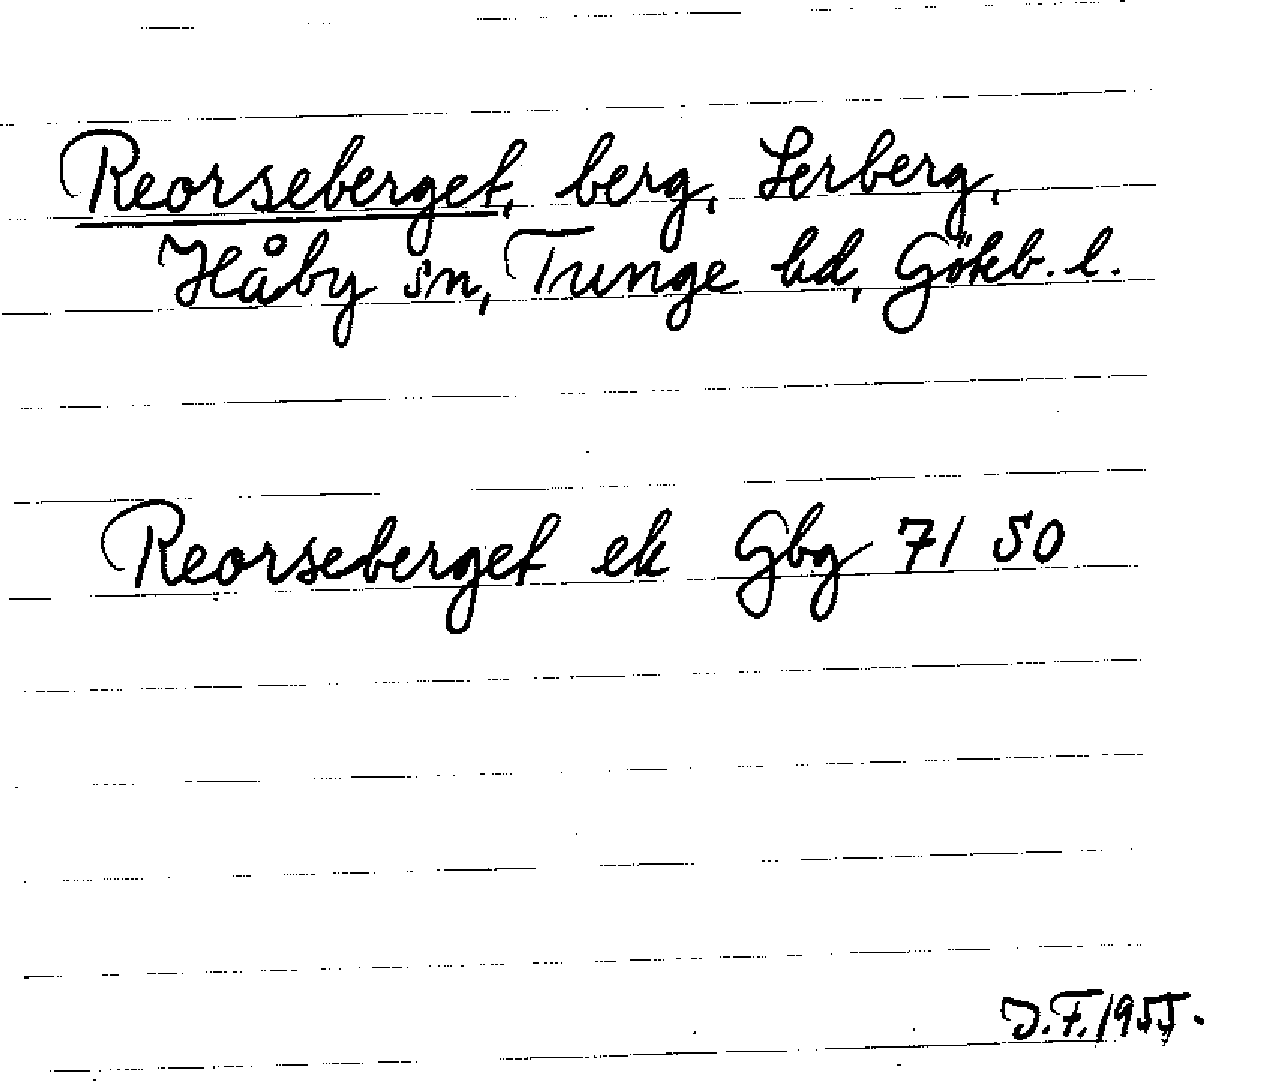 Reorseberget, berg, Lerberg,
Håby sn, Tunge hd, Gökb. l.
Reorseberget ek Gbg 7/ 50
J.F. 1955.